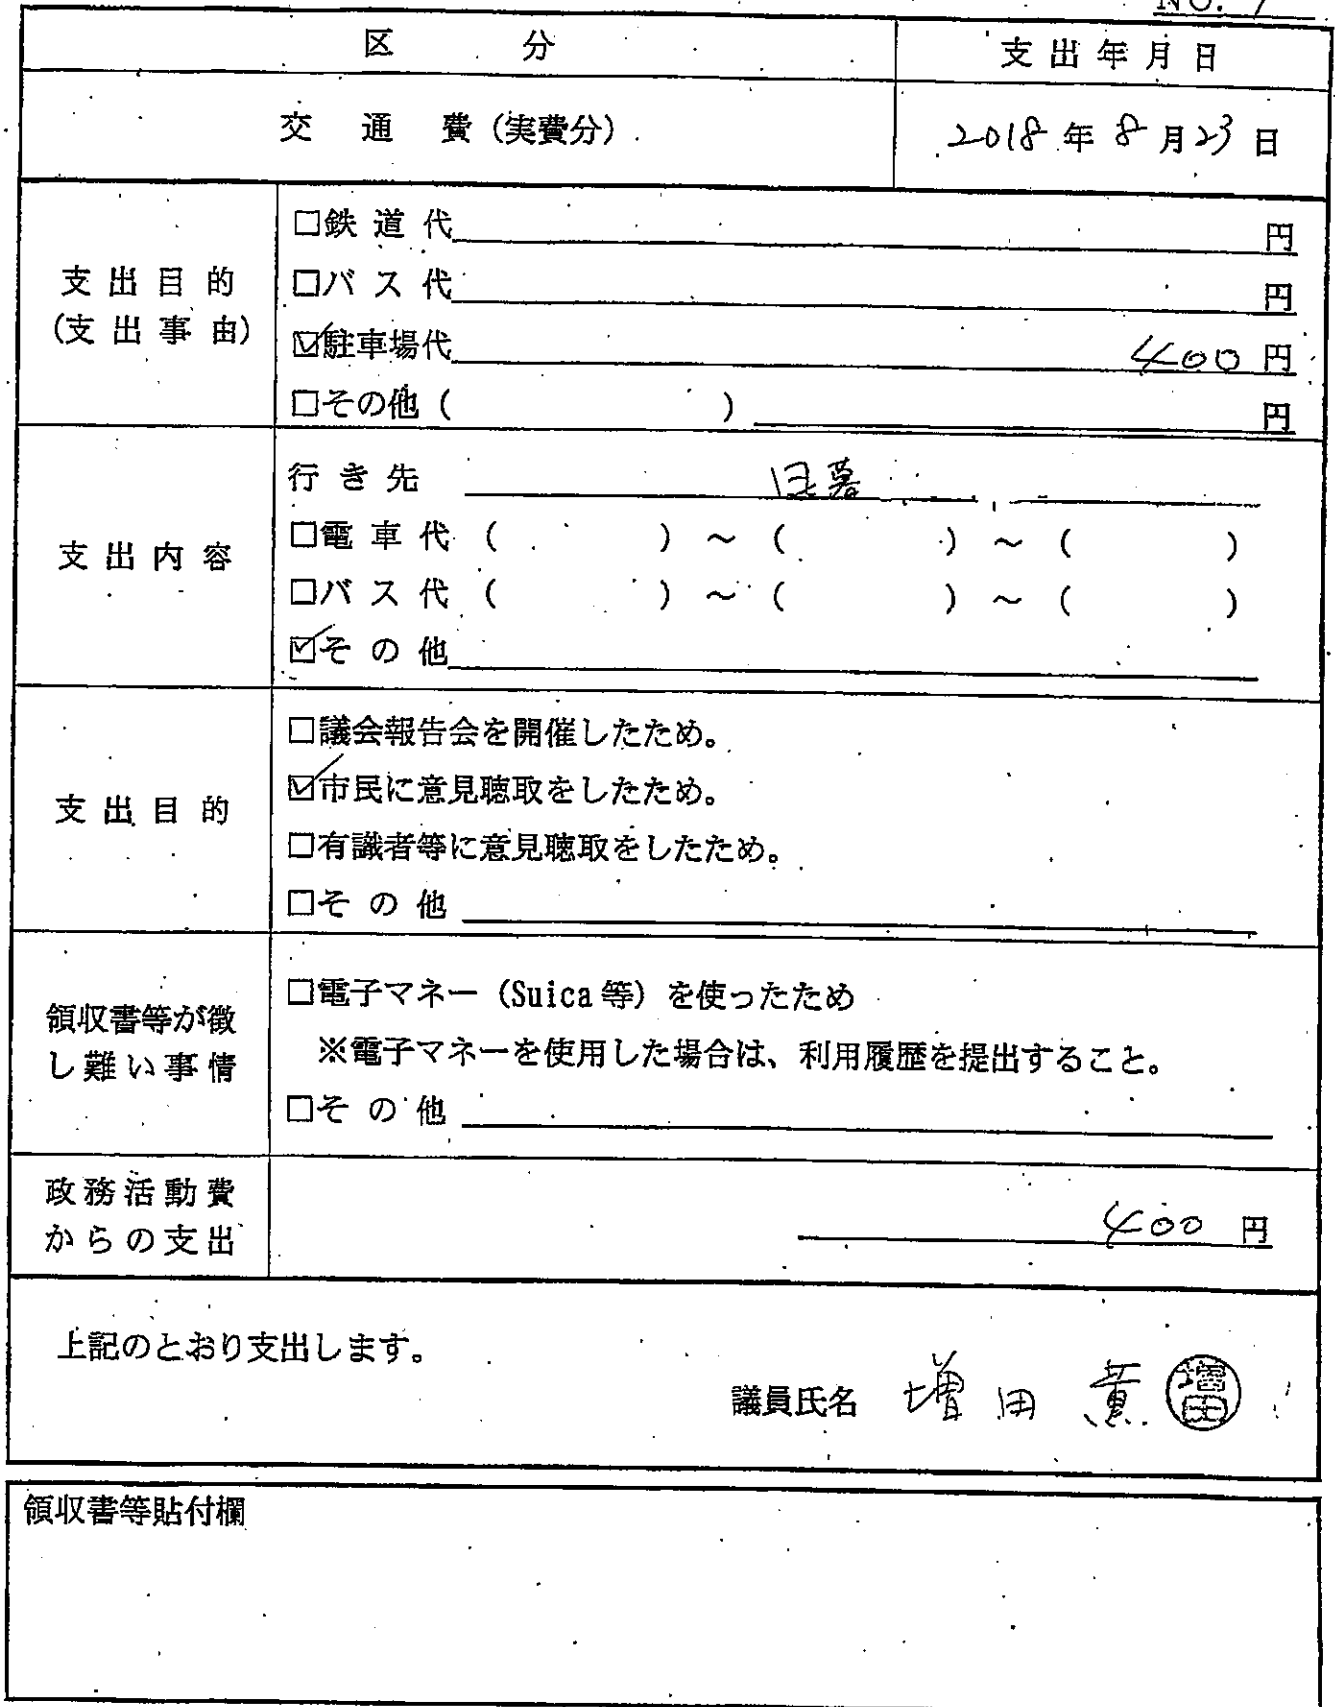 NO.
区 分 支出年月日
交 通 費(実費分) 2018年8月23日
支出目的
(支出事由)
□鉄道代 円
□バス代 円
☑駐車場代 400円
□その他( ) 円
支出内容
行き先
□電車代( )~( )~( )
□バス代( )~( )~( )
☑その他
支出目的
□議会報告会を開催したため。
☑市民に意見聴取をしたため。
□有識者等に意見聴取をしたため。
□その他
領収書等が徴
し難い事情
□電子マネー(Suica等)を使ったため
※電子マネーを使用した場合は、利用履歴を提出すること。
□その他
政務活動費
からの支出
400円
上記のとおり支出します。
議員氏名 増田 薫 増田
領収書等貼付欄